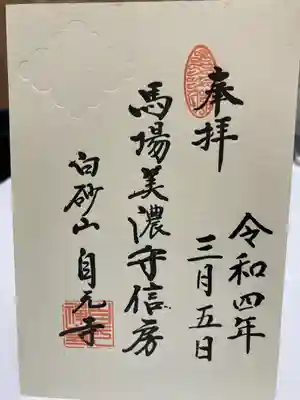 奉拝
令和四年
三月五日
馬場美濃守信房
白砂山 自元寺